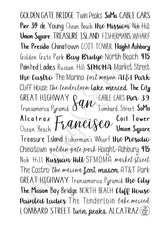 GOLDEN GATE BRIDGE Twin Peaks SoMa CABLE CARS
Alcatraz Ocean Beach PIER 39 Coit Tower
Union Square TREASURE ISLAND FISHERMANS WHARF
The Presidio Chinatown COIT TOWER Haight-Ashbury
Golden Gate Park Bay Bridge NORTH BEACH 415
Painted Ladies Russian Hill SFMOMA Market Street
the Castro The Marina foot mason AT&T PARK
CLIFF HOUSE the tenderloin lake merced The City
GREAT HIGHWAY San CABLE CARS
Transamerica Pyramid PIER 39
Alcatraz Coit Tower
Ocean Beach Francisco Union Square
Treasure Island Fisherman's Wharf the Presidio
Chinatown golden gate park Haight-Ashbury 415
Nob Hill Russian Hill SFMOMA market street
The Castro the marina AT&T PARK
GREAT HIGHWAY cliff house lake merced the City
Transamerica Pyramid
The Mission Bay Bridge NORTH BEACH Cliff House
Painted Ladies the Tenderloin lake merced
LOMBARD STREET Twin peaks ALCATRAZ